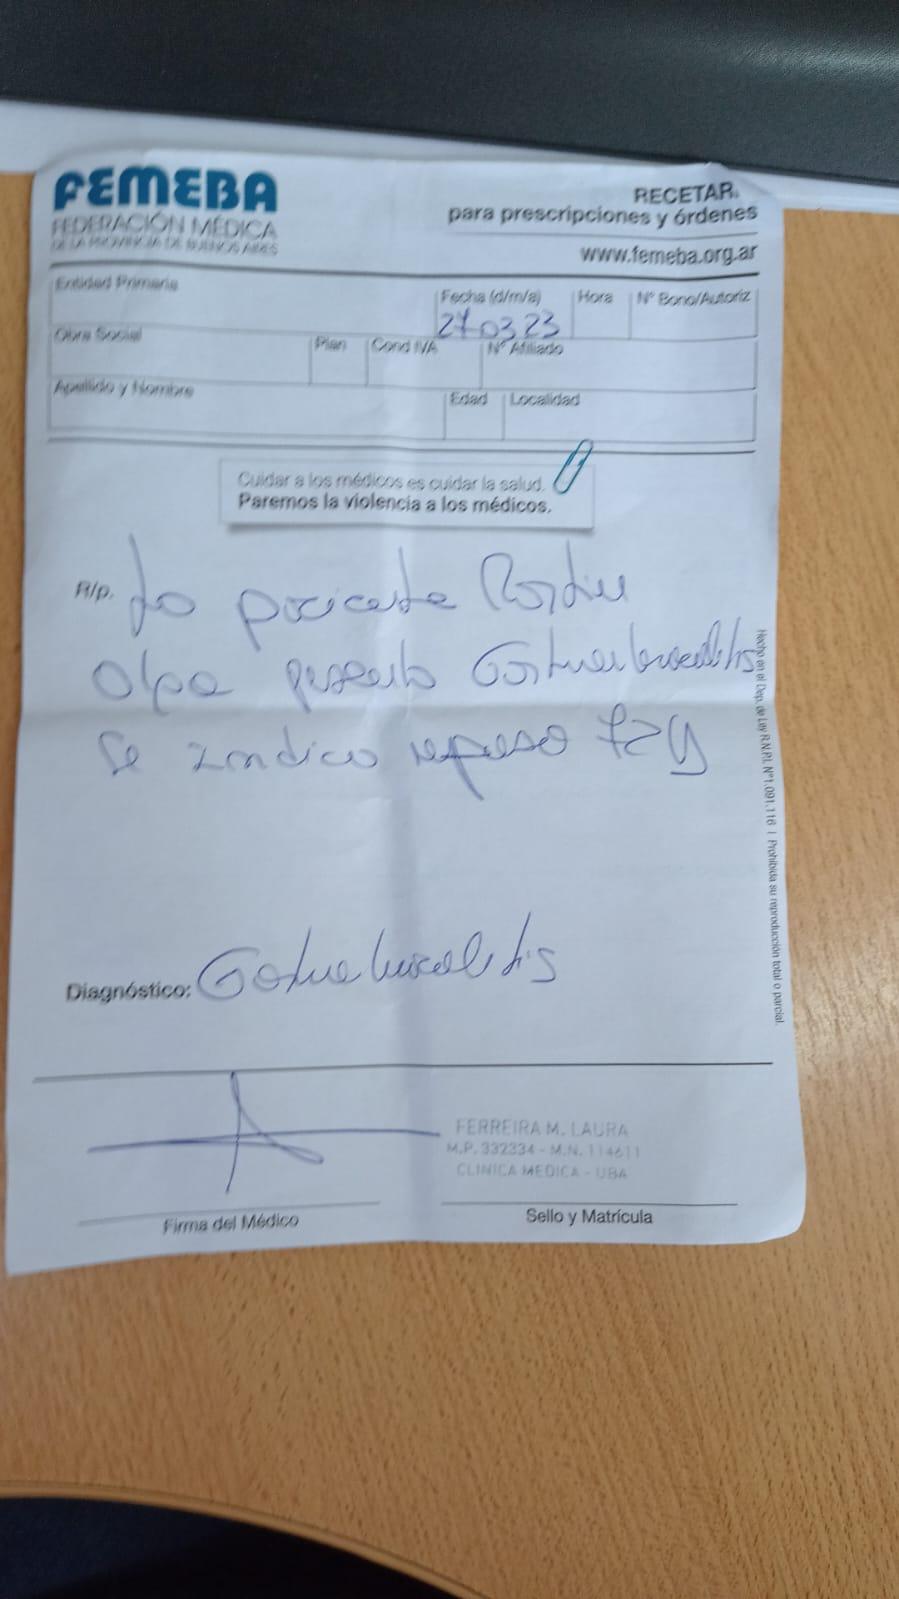 FEMEBA
FEDERACIÓN MÉDICA
DE LA PROVINCIA DE BUENOS AIRES
RECETAR.
para prescripciones y órdenes
www.femeba.org.ar
Entidad Primaria
Fecha (d/m/a)
Hora
Nº Bono/Autoriz
27 03 23
Obra Social
Plan
Cond IVA
Nº Afiliado
Apellido y Nombre
Edad
Localidad
Cuidar a los médicos es cuidar la salud.
Paremos la violencia a los médicos.
R/p. La paciente
Olga presenta
Se indica reposo 72
Diagnóstico:
FERREIRA M. LAURA
M.P. 332334 - M.N. 114611
CLINICA MEDICA - UBA
Firma del Médico
Sello y Matrícula
Hecho en el Dep. de Ley R.N.P.I. Nº1.091.116 | Prohibida su reproducción total o parcial.